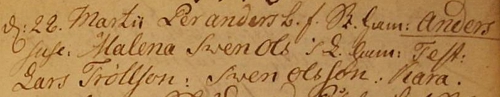 d: 22. Martii Per anders L. f. St. Ham: Anders
suse. Malena Swen Ols 's L. Ham: Test:
Lars Tröllson: Swen olsson. Kara.